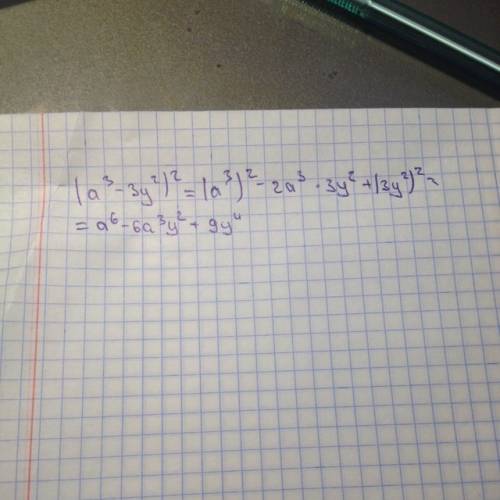 (a³-3y²)²=(a³)²-2a³·3y²+(3y²)²=
=a⁶-6a³y²+9y⁴